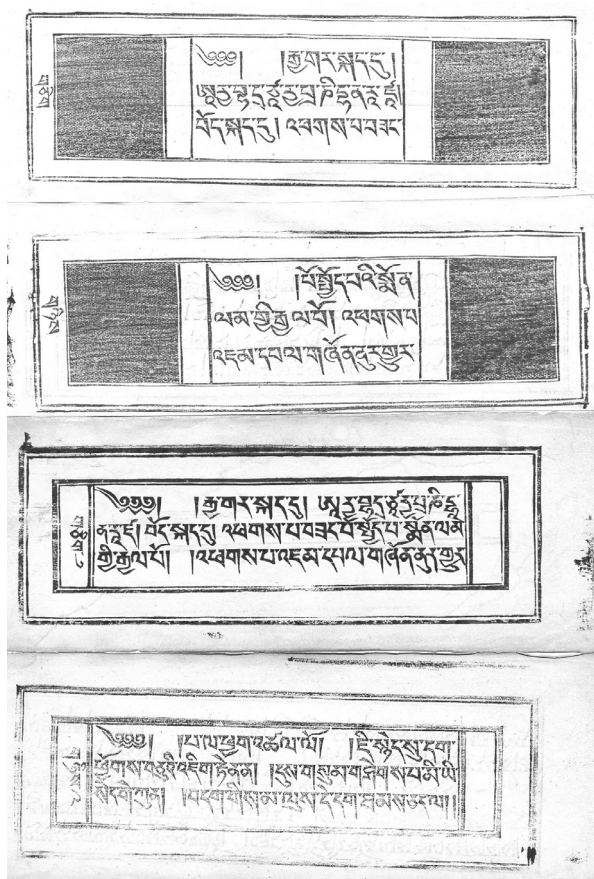 གཅིག
༄༅༅། །རྒྱ་གར་སྐད་དུ།
ཨཱརྱ་བྷདྲ་ཙརྱ་པྲ་ཎི་དྷ་ན་རཱ་ཛཱ།
བོད་སྐད་དུ། འཕགས་པ་བཟང་
གཉིས
༄༅༅། །པོ་སྤྱོད་པའི་སྨོན་
ལམ་གྱི་རྒྱལ་པོ། འཕགས་པ་
འཇམ་དཔལ་གཞོན་ནུར་གྱུར་
གཅིག་
༄༅༅། །རྒྱ་གར་སྐད་དུ། ཨཱརྱ་བྷདྲ་ཙརྱ་པྲ་ཎི་དྷཱ་
ན་རཱ་ཛ། བོད་སྐད་དུ འཕགས་པ་བཟང་པོ་སྤྱོད་པ་སྨོན་ལམ་
གྱི་རྒྱལ་པོ། །འཕགས་པ་འཇམ་དཔལ་གཞོན་ནུར་གྱུར
གཉིས་
༄༅༅། །པ་ལ་ཕྱག་འཚལ་ལོ། །ཇི་སྙེད་སུ་དག་
ཕྱོགས་བཅུའི་འཇིག་རྟེན་ན། །དུས་གསུམ་གཤེགས་པ་མི་ཡི་
སེངྒེ་ཀུན། །བདག་གིས་མ་ལུས་དེ་དག་ཐམས་ཅད་ལ། །